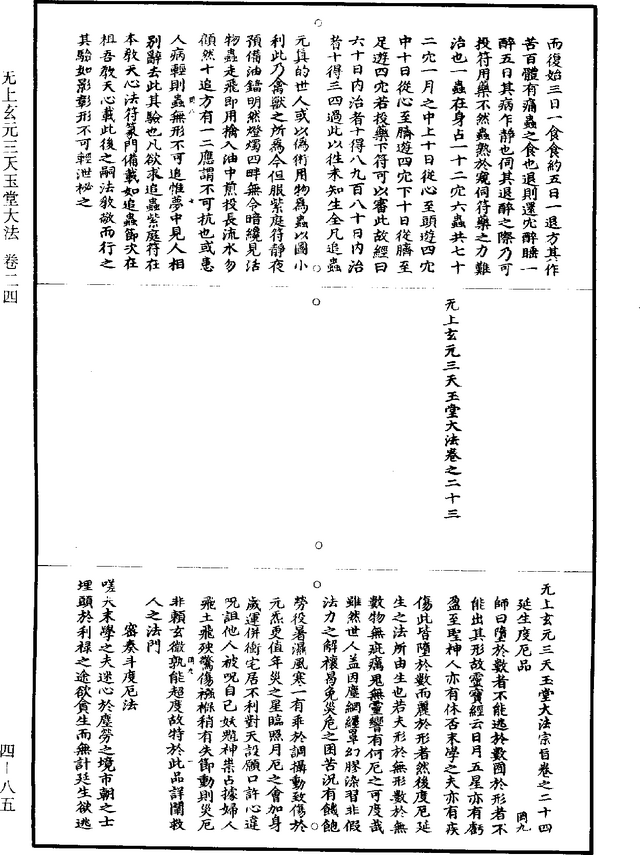 而復始三日一食食約五日一退方其作
苦百體有痛蟲之食也退則還穴醉睡一
醉五日其病乍靜也伺其退醉之際乃可
投符用藥不然蟲熟於寇伺符藥之力難
治也一蟲在身占一十二穴六蟲共七十
二穴一月之中上十日從心至頭遊四穴
中十日從心至臍遊四穴下十日從臍至
足遊四穴若投藥下符可以審此故經曰
六十日內治者十得八九百八十日內治
者十得三四過此以往未知生全凡追蟲
元真的世人或以偽術用物為蟲以圖小
利此乃禽獸之所為今但服紫庭符靜夜
預備油鐺明然燈燭四畔無令暗纔見活
物蟲走飛即用擒入油中煎投長流水勿
顧然十追方有一二應謂不可抗也或患
人病輕則蟲無形不可追惟夢中見人相
別辭去此其驗也凡欲求追蟲紫庭符在
本教天心法符篆門備載如追蟲節次在
祖吾教天心載此後之嗣法敎敬而行之
其驗如影彰形不可輕泄秘之
无上玄元三天玉堂大法卷之二十三
无上玄元三天玉堂大法宗旨卷之二十四 岡九
延生度厄品
師曰墮於數者不能逃於數囿於形者不
能出其形故靈寶經云日月五星亦有虧
盈至聖神人亦有休否末學之夫亦有疾
傷此皆墮於數而麗於形者然後度厄延
生之法所由生也若夫形於無形數於無
數物無疵癘鬼無靈響有何厄之可度哉
雖然世人蓋因塵網纏罩幻膠染習非假
法力之解禳曷免災危之困苦況有饑飽
勞役暑濕風寒一有乖於調攝動致傷於
元炁更值年災之星臨照月厄之會加身
歲運併衝宅居不利對天設願口許心違
呪詛他人被呪自己妖魑神祟占據婦人
飛土飛殃驚傷襁褓稍有失節動則災厄
非賴玄微孰能超度故特於此品詳闡救
人之法門
密奏斗度厄法
嗟夫末學之夫迷心於塵勞之境市朝之士
埋頭於利祿之途欲貪生而無計延生欲逃
无上玄元三天玉堂大法 卷二四
四－八五